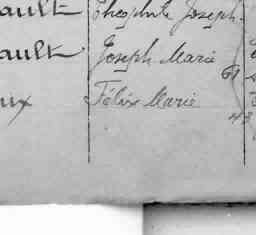 ault Théophile Joseph
ault Joseph Marie
61
ux Félix Marie
43